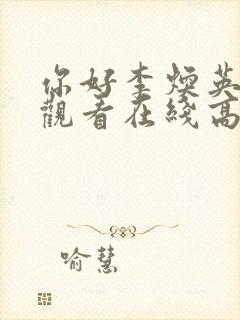 你好李煥英
觀看在綫高
喻慧